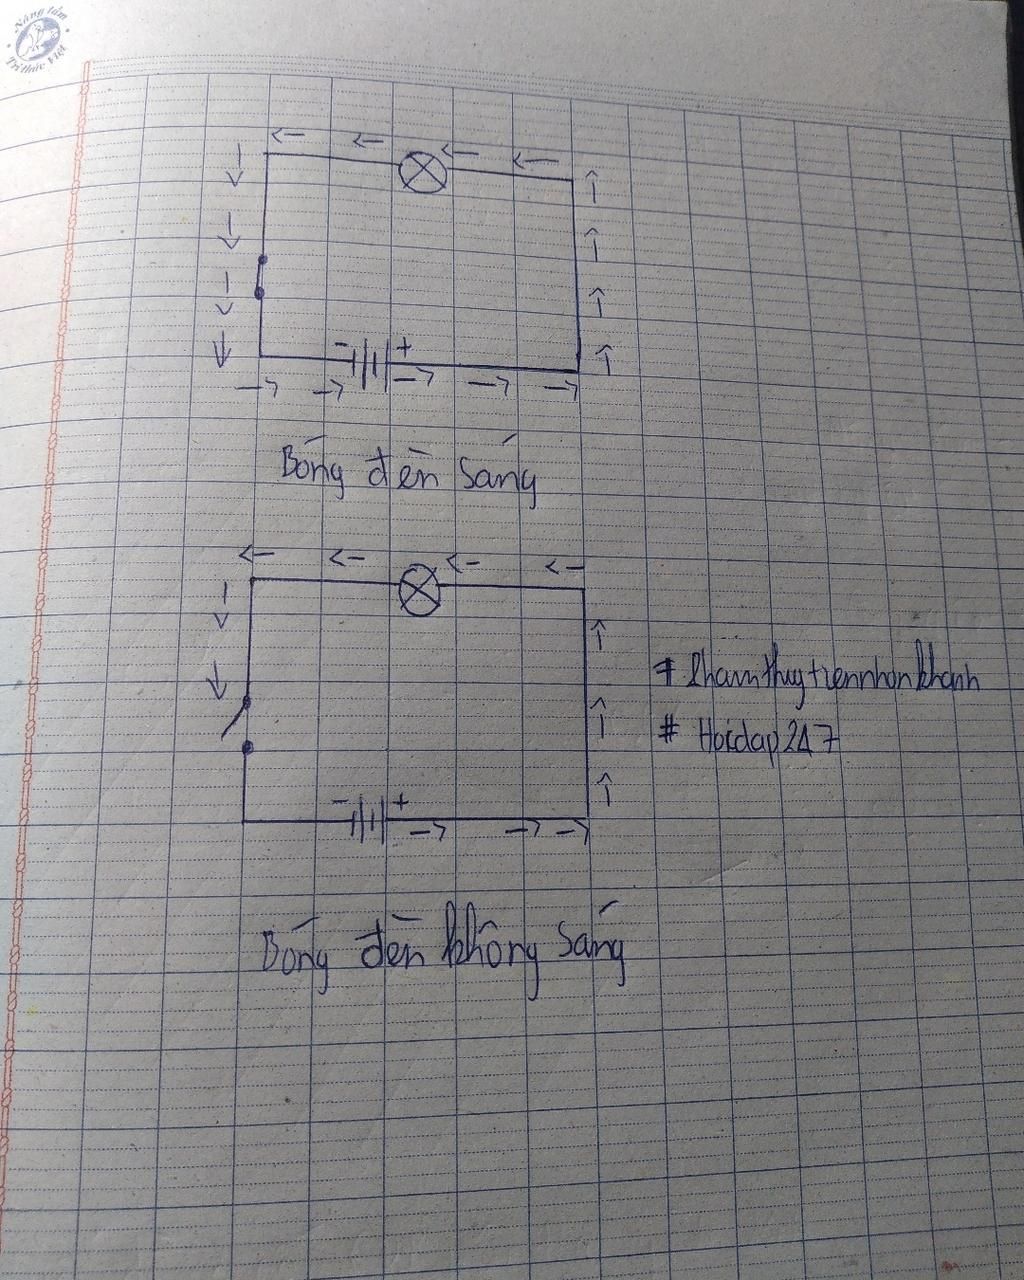 Nâng tầm
Tri thức Việt
- +
Bóng đèn sáng
# Phamthuytiennhonkhanh
# Hoidap247
- +
Bóng đèn không sáng